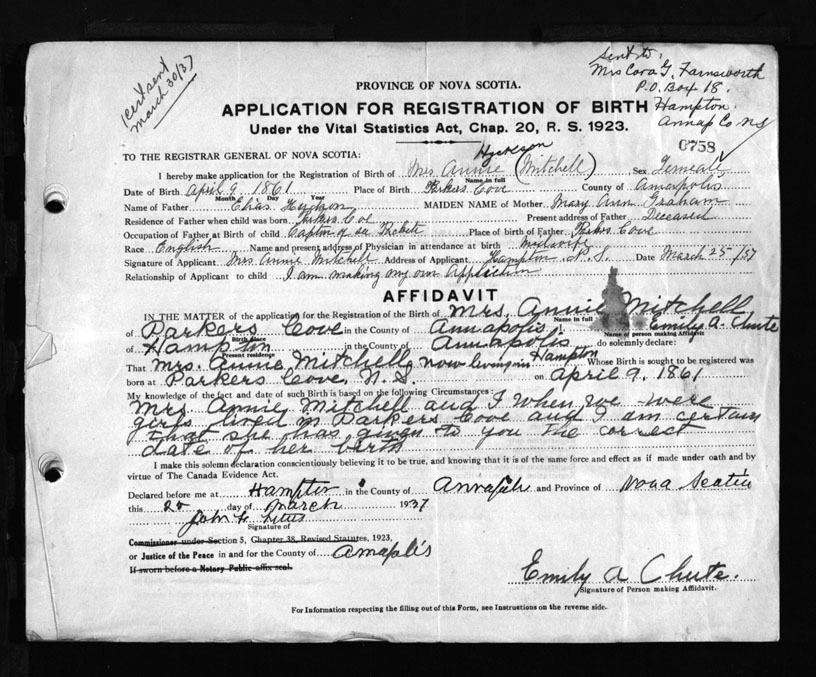 (Cert sent
March 30/37
sent to:
Mrs Cora G. Farnsworth
P.O. Box 18.
Hampton.
Annap Co NS
PROVINCE OF NOVA SCOTIA.
APPLICATION FOR REGISTRATION OF BIRTH
Under the Vital Statistics Act, Chap. 20, R. S. 1923.
0758
TO THE REGISTRAR GENERAL OF NOVA SCOTIA:
I hereby make application for the Registration of Birth of Mrs. Annie (Mitchell) Sex Female
Name in full
Date of Birth April 9 1861 Place of Birth Parkers Cove County of Annapolis
Month Day Year
Name of Father Elias MAIDEN NAME of Mother Mary Ann Graham
Residence of Father when child was born Parkers Coe Present address of Father Deceased
Occupation of Father at Birth of child Captin of Place of birth of Father Parkers Cove
Race English Name and present address of Physician in attendance at birth midwife
Signature of Applicant Mrs Annie Mitchell Address of Applicant Hampton N.S. Date March 25/37
Relationship of Applicant to child I am making my own Application
AFFIDAVIT
IN THE MATTER of the application of the Registration of the Birth of Mrs. Annie Mitchell
Name in full
of Parkers Cove in the County of Annapolis I Emily A. Chute
Birth place Name of person making Affidavit
of Hampton in the County of Annapolis do solemnly declare:
Present residence
That Mrs. Annie Mitchell now living in Hampton Whose Birth is sought to be registered was
born at Parkers Cove, N.S. on April 9, 1861
My knowledge of the fact and date of such Birth is based on the following Circumstances:
Mrs. Annie Mitchell and I when we were
girls lived in Parkers Cove and I am certain
that she has given to you the correct
date of her birth
I make this solemn declaration conscientiously believing it to be true, and knowing that it is of the same force and effect as if made under oath and by
virtue of The Canada Evidence Act.
Declared before me at Hampton in the County of Annapolis and Province of Nova Scotia
this 25 day of March 1937
John
Signature of
Commissioner under Section 5, Chapter 38, Revised Statutes, 1923,
or Justice of the Peace in and for the County of Annaplis
If sworn before a Notary Public affix seal.
Emily A Chute.
Signature of Person making Affidavit.
For Information respecting the filling out of this Form, see Instructions on the reverse side.